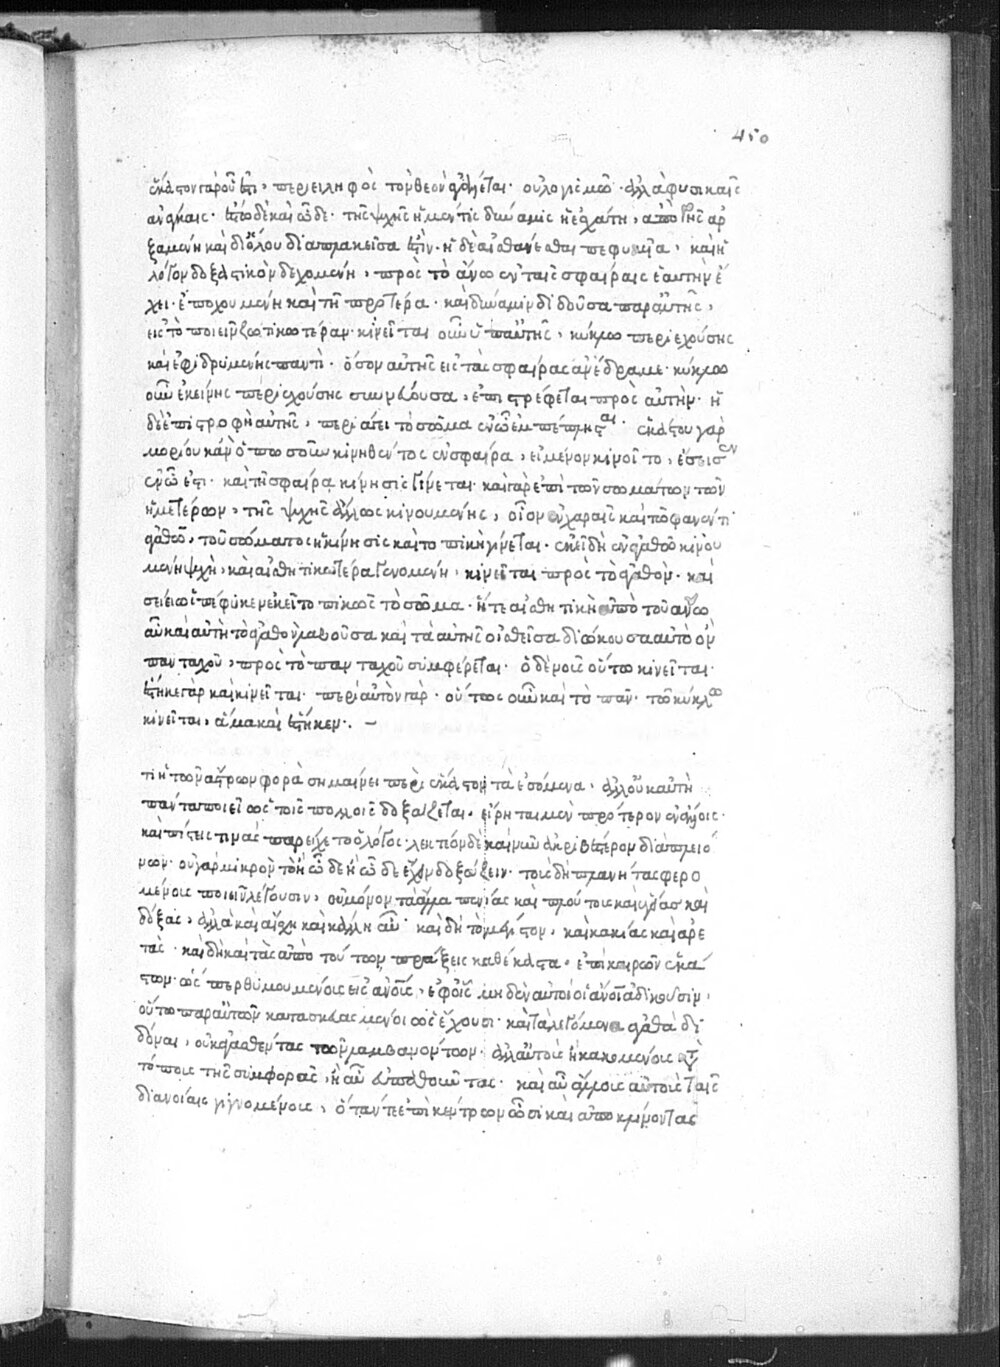 450
ἕκαστον γὰρ οὗ ἐστι, περιειληφὸς τὸν θεὸν ἀγάλλεται. οὐ λογισμῷ. ἀλλὰ φυσικαῖς
ἀνάγκαις. ἔστω δὲ καὶ ὧδε. τῆς ψυχῆς ἡ μέν τις δύναμις ἡ ἐσχάτη, ἀπὸ γῆς ἀρ
ξαμένη καὶ δι' ὅλου διαπλακεῖσα ἐστίν. ἡ δὲ αἰσθάνεσθαι πεφυκυῖα, καὶ ἡ
λόγον δοξαστικὸν δεχομένη, πρὸς τὸ ἄνω ἐν ταῖς σφαίραις ἑαυτὴν ἔ
χει. ἐποχουμένη καὶ τῇ προτέρα. καὶ δύναμιν διδοῦσα παρ' αὐτῆς,
εἰς τὸ ποιεῖν ζωτικωτέραν. κινεῖται οὖν ὑπ' αὐτῆς, κύκλω περιεχούσης
καὶ ἐφιδρυμένης παντὶ. ὅσον αὐτῆς εἰς τὰς σφαίρας ἀνέδραμε. κύκλω
οὖν ἐκείνης περιεχούσης συννεύουσα, ἐπιστρέφεται πρὸς αὐτήν. ἡ
δὲ ἐπιστροφὴ αὐτῆς, περιάγει τὸ σῶμα ἐν ᾧ ἐμπέπλησται. ἑκάστου γὰρ
μορίου κἂν ὁπωσοῦν κινηθέντος ἐν σφαίρα, εἰ μένον κινοῖτο, ἔσεισεν
ἐν ᾧ ἐστι. καὶ τῇ σφαίρα κίνησις γίνεται. καὶ γὰρ ἐπὶ τῶν σωμάτων τῶν
ἡμετέρων, τῆς ψυχῆς ἄλλως κινουμένης, οἷον ἐν χαραῖς καὶ τῷ φανέντι
ἀγαθῷ, τοῦ σώματος ἡ κίνησις καὶ τοπικὴ γίνεται. ἐκεῖ δὴ ἐν ἀγαθῷ κινου
μένη ψυχὴ, καὶ αἰσθητικωτέρα γενομένη, κινεῖται πρὸς τὸ ἀγαθὸν. καὶ
σείει ὡς πέφυκεν ἐκεῖ τοπικῶς τὸ σῶμα. ἥ τε αἰσθητικὴ ἀπὸ τοῦ ἄνω
αὖ καὶ αὐτὴ τὸ ἀγαθὸν λαβοῦσα καὶ τὰ αὐτῆς ἡσθεῖσα διώκουσα αὐτὸ ὂν
πανταχοῦ, πρὸς τὸ πανταχοῦ συμφέρεται. ὁ δὲ νοῦς οὕτω κινεῖται.
ἕστηκε γὰρ καὶ κινεῖται. περὶ αὐτὸν γάρ. οὕτως οὖν καὶ τὸ πᾶν. τῷ κύκλω
κινεῖται, ἅμα καὶ ἕστηκεν. –
τι ἡ τῶν ἄστρων φορὰ σημαίνει περὶ ἕκαστον τὰ ἐσόμενα, ἀλλ' οὐκ αὐτὴ
πάντα ποιεῖ ὡς τοῖς πολλοῖς δοξάζεται, εἴρηται μὲν πρότερον ἐν ἄλλοις.
καὶ πίστεις τινας παρεῖχετο ὁ λόγος. λεκτέον δὲ καὶ νῦν ἀκριβέστερον διὰ πλειό
νων. οὐ γὰρ μικρὸν τὸ ἢ ὧδε ἢ ὧδε ἔχειν δοξάζειν. τοὺς δὴ πλανήτας φερο
μένους ποιεῖν λέγουσιν, οὐ μόνον τὰ ἄλλα πενίας καὶ πλούτους καὶ ὑγιείας καὶ
δόξας, ἀλλὰ καὶ αἴσχη καὶ κάλλη αὖ. καὶ δὴ τὸ μέγιστον, καὶ κακίας καὶ ἀρε
τὰς. καὶ δὴ καὶ τὰς ἀπὸ τούτων πράξεις καθέκαστα, ἐπὶ καιρῶν ἑκά
στων. ὡς περ θυμουμένους εἰς ἀνους, ἐφ' οἷς μηδὲν αὐτοὶ οἱ ἄνοι ἀδικοῦσιν,
οὕτω παρ' αὐτῶν κατασκευασμένοι ὡς ἔχουσι. καὶ τὰ λεγόμενα ἀγαθὰ δι
δόναι, οὐκ ἀγασθέντας τῶν λαμβανόντων. ἀλλ' αὐτοὺς ἢ κακουμένους κατὰ
τόπους τῆς συμφορᾶς, ἢ αὖ εὐπαθοῦντας. καὶ αὖ ἄλλους αὐτοὺς ταῖς
διανοίαις γιγνομένους, ὅταν τε ἐπὶ κέντρων ὦσι καὶ ἀποκλίνοντας